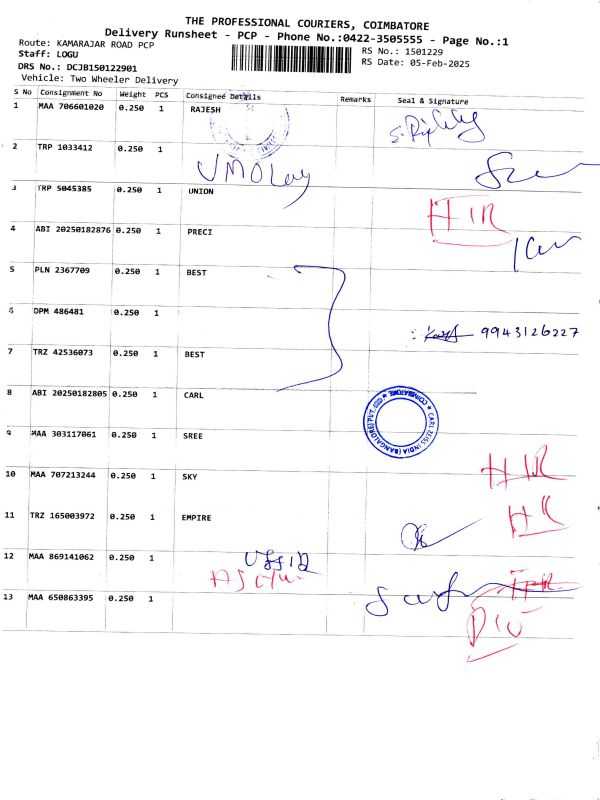 THE PROFESSIONAL COURIERS, COIMBATORE
Delivery Runsheet - PCP - Phone No.:0422-3505555 - Page No.:1
Route: KAMARAJAR ROAD PCP
Staff: LOGU
DRS No.: DCJB150122901
Vehicle: Two Wheeler Delivery
RS No.: 1501229
RS Date: 05-Feb-2025
S No Consignment No Weight PCS Consignee Details Remarks Seal & Signature
1 MAA 706601020 0.250 1 RAJESH
2 TRP 1033412 0.250 1
3 TRP 5045385 0.250 1 UNION
HIR
4 ABI 20250182876 0.250 1 PRECI
5 PLN 2367709 0.250 1 BEST
6 DPM 486481 0.250 1
9943126227
7 TRZ 42536073 0.250 1 BEST
8 ABI 20250182805 0.250 1 CARL
CARL ZEISS INDIA (BANGALORE) PVT. LTD * COIMBATORE *
9 MAA 303117061 0.250 1 SREE
HIR
10 MAA 707213244 0.250 1 SKY
11 TRZ 165003972 0.250 1 EMPIRE
12 MAA 869141062 0.250 1
13 MAA 650863395 0.250 1